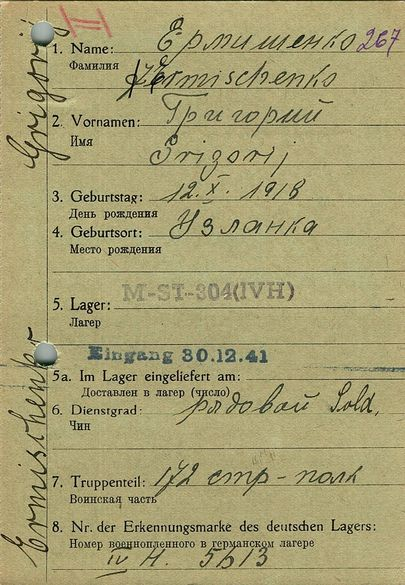 II
267
1. Name: Ермишенко
Фамилия
Jermischenko
2. Vornamen: Григорий
Имя
Grigorij
3. Geburtstag: 12. X. 1918
День рождения
4. Geburtsort: Узланка
Место рождения
M-ST-304(IVH)
5. Lager:
Лагер
Eingang 30.12.41
5a. Im Lager eingeliefert am:
Доставлен в лагер (число)
6. Dienstgrad: рядовой Sold.
Чин
7. Truppenteil: 172 стр-полк
Воинская часть
8. Nr. der Erkennungsmarke des deutschen Lagers:
Номер военнопленного в германском лагере
IV H. 5613
Ermischenko Grigorij